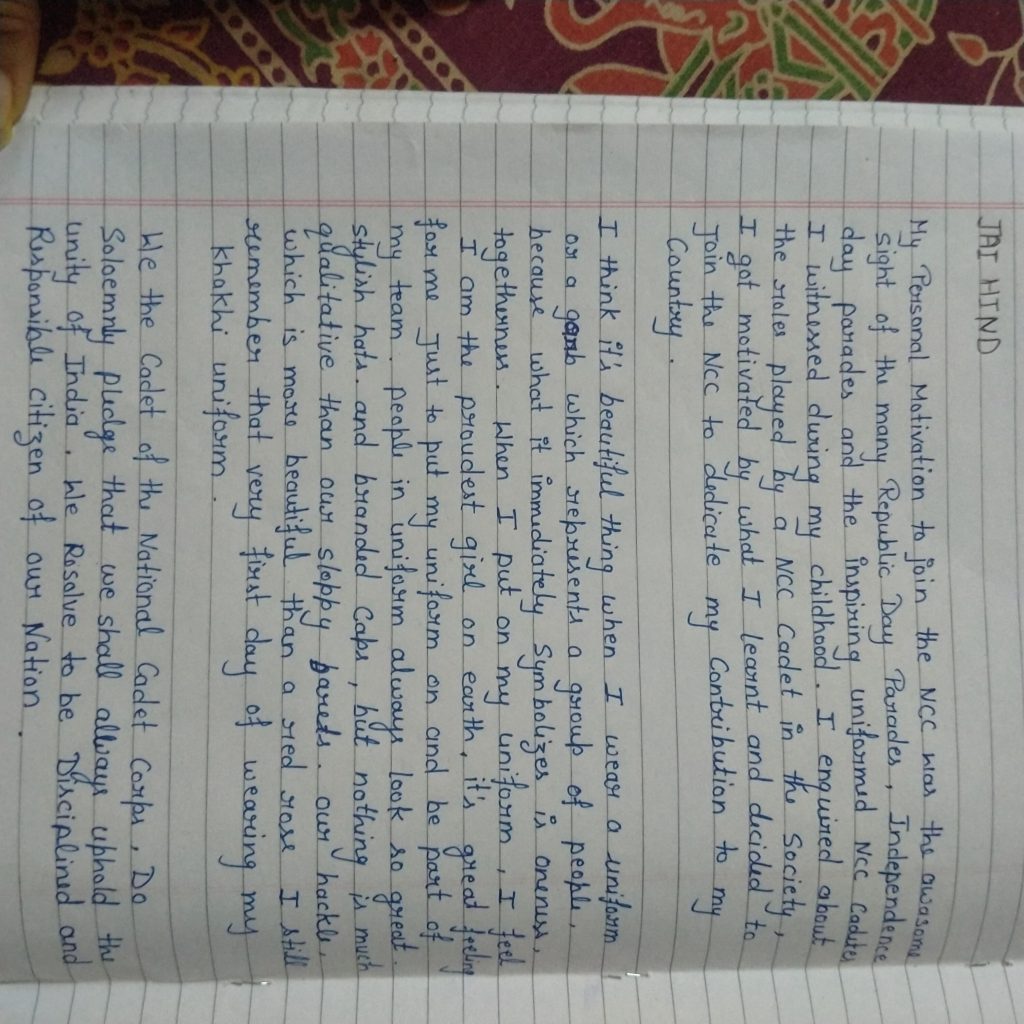 JAI HIND
My Personal Motivation to join the NCC was the awasome
sight of the many Republic Day Parades, Independence
day parades and the inspiring uniformed Ncc cadites
I witnessed during my childhood. I enquired about
the roles played by a NCC Cadet in the Society,
I got motivated by what I learnt and dicided to
join the Ncc to dedicate my Contribution to my
Country.
I think it's beautiful thing when I wear a uniform
or a garb which represents a group of people,
because what it immidiately Symbolizes is oneness,
togetherness. When I put on my uniform, I feel
I am the proudest girl on earth, it's great feeling
for me Just to put my uniform on and be part of
my team. people in uniform always look so great.
stylish hats. and branded Caps, but nothing is much
qualitative than our sloppy barets. our hackle,
which is more beautiful than a red rose I still
remember that very first day of wearing my
Khakhi uniform.
We the Cadet of the National Cadet Corps, Do
Soloemnly pledge that we shall always uphold the
unity of India. We Resolve to be Disciplined and
Responsible citizen of our Nation.